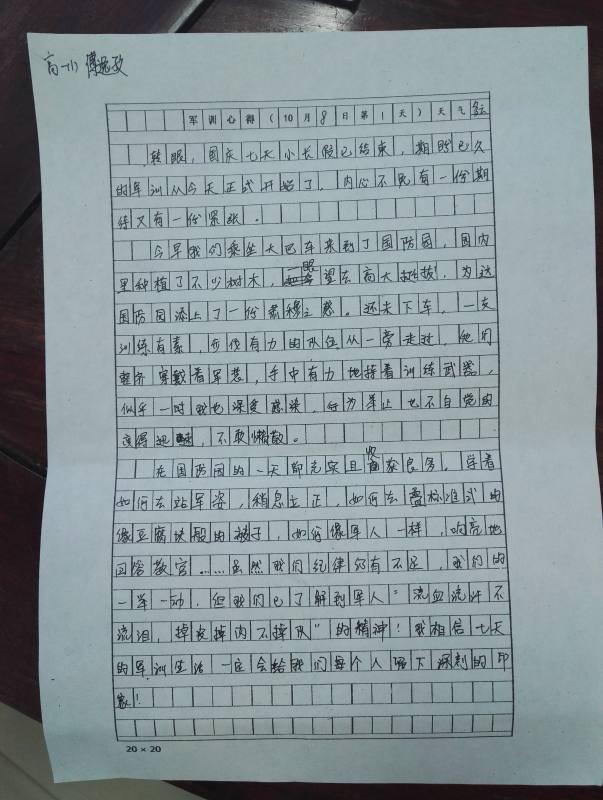 高一(1) 傅逸
军训心得(10月8日第1天)天气多云
转眼,国庆七天小长假已结束,期盼已久
的军训从今天正式开始了,内心不免有一份期
待又有一份紧张。
今早我们乘坐大巴车来到了国防园,园内
里种植了不少树木,一眼望去高大挺拔,为这
国防园添上了一份肃穆之感。还未下车,一支
训练有素,步伐有力的队伍从一旁走过,他们
整齐穿戴着军装,手中有力地持着训练武器,
似乎一时我也深受感染,行为举止也不自觉的
变得迅速,不敢懒散。
在国防园的一天即充实且收获良多。学着
如何去站军姿,稍息立正,如何去叠标准式的
像豆腐块般的被子,如何像军人一样,响亮地
回答教官……虽然我们纪律仍有不足,我们的
一举一动,但我们已了解到军人“流血流汗不
流泪,掉皮掉肉不掉队”的精神!我相信七天
的军训生活一定会给我们每个人留下深刻的印
象!
20×20